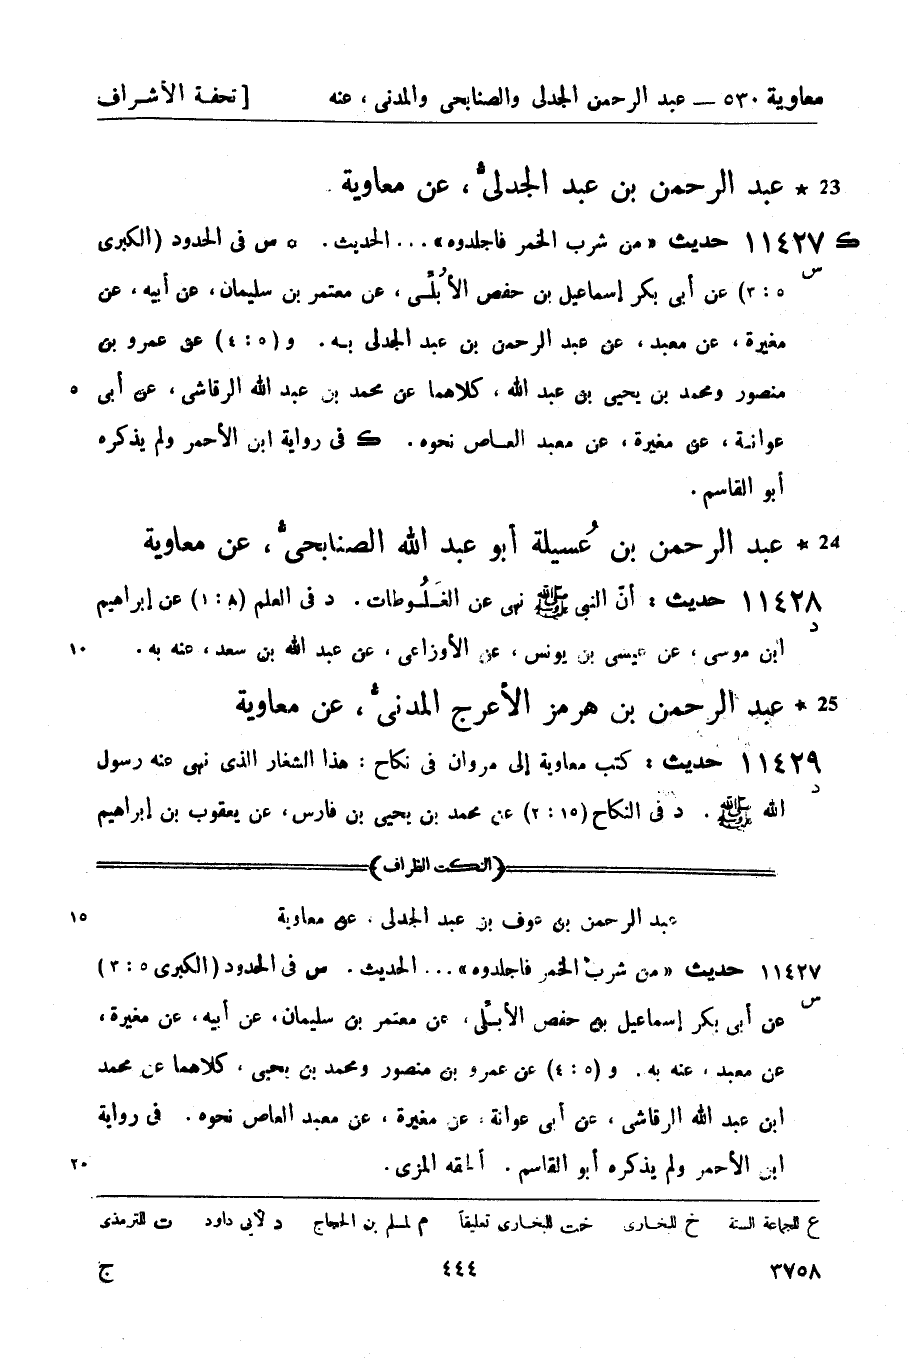 معاوية ٥٣٠ — عبد الرحمن الجدلى والصنابحى والمدنى ، عنه [ تحفة الأشراف
23 * عبد الرحمن بن عبد الجدلى ، عن معاوية .
ك ١١٤٢٧ حديث «من شرب الخمر فاجلدوه» ... الحديث . ٥ س فى الحدود (الكبرى
س ٥ : ٣) عن أبى بكر إسماعيل بن حفص الأُبُلِّـى ، عن معتمر بن سليمان، عن أبيه ، عن
مغيرة ، عن معبد ، عن عبد الرحمن بن عبد الجدلى بـه . و (٥ : ٤) عن عمرو بن
منصور ومحمد بن يحيى بن عبد الله ، كلاهما عن محمد بن عبد الله الرقاشى ، عن أبى ٥
عوانـة ، عن مغيرة ، عن معبد العـاص نحوه . ك فى رواية ابن الأحمر ولم يذكره
أبو القاسم .
24 * عبد الرحمن بن عُسيلة أبو عبد الله الصنابحى ، عن معاوية
١١٤٢٨ حديث : أنّ النبى ﷺ نهى عن الغَـلُـوطات . د فى العلم (٨ : ١) عن إبراهيم
د
ابن موسى ، عن عيسى بن يونس ، عن الأوزاعى ، عن عبد الله بن سعد، عنه به . ١٠
25 * عبد الرحمن بن هرمز الأعرج المدنى ، عن معاوية
١١٤٢٩ حديث : كتب معاوية إلى مروان فى نكاح : هذا الشغار الذى نهى عنه رسول
د
الله ﷺ . د فى النكاح (١٥ : ٢) عن محمد بن يحيى بن فارس، عن يعقوب بن إبراهيم
(النكت الظراف)
عبد الرحمن بن عوف بن عبد الجدلى ، عن معاوية ١٥
١١٤٢٧ حديث «من شرب الخمر فاجلدوه» ... الحديث . س فى الحدود (الكبرى ٥ : ٣)
س
عن أبى بكر إسماعيل بن حفص الأبـلّى ، عن معتمر بن سليمان، عن أبيه، عن مغيرة،
عن معبد ، عنه به . و (٥ : ٤) عن عمرو بن منصور ومحمد بن يحيى ، كلاهما عن محمد
ابن عبد الله الرقاشى ، عن أبى عوانة ، عن مغيرة ، عن معبد العاص نحوه . فى رواية
ابن الأحمر ولم يذكره أبو القاسم . ألحقه المزى . ٢٠
ع للجماعة الستة خ للبخارى خت للبخارى تعليقاً م لمسلم بن الحجاج د لأبى داود ت للترمذى
٣٧٥٨ ٤٤٤ ج